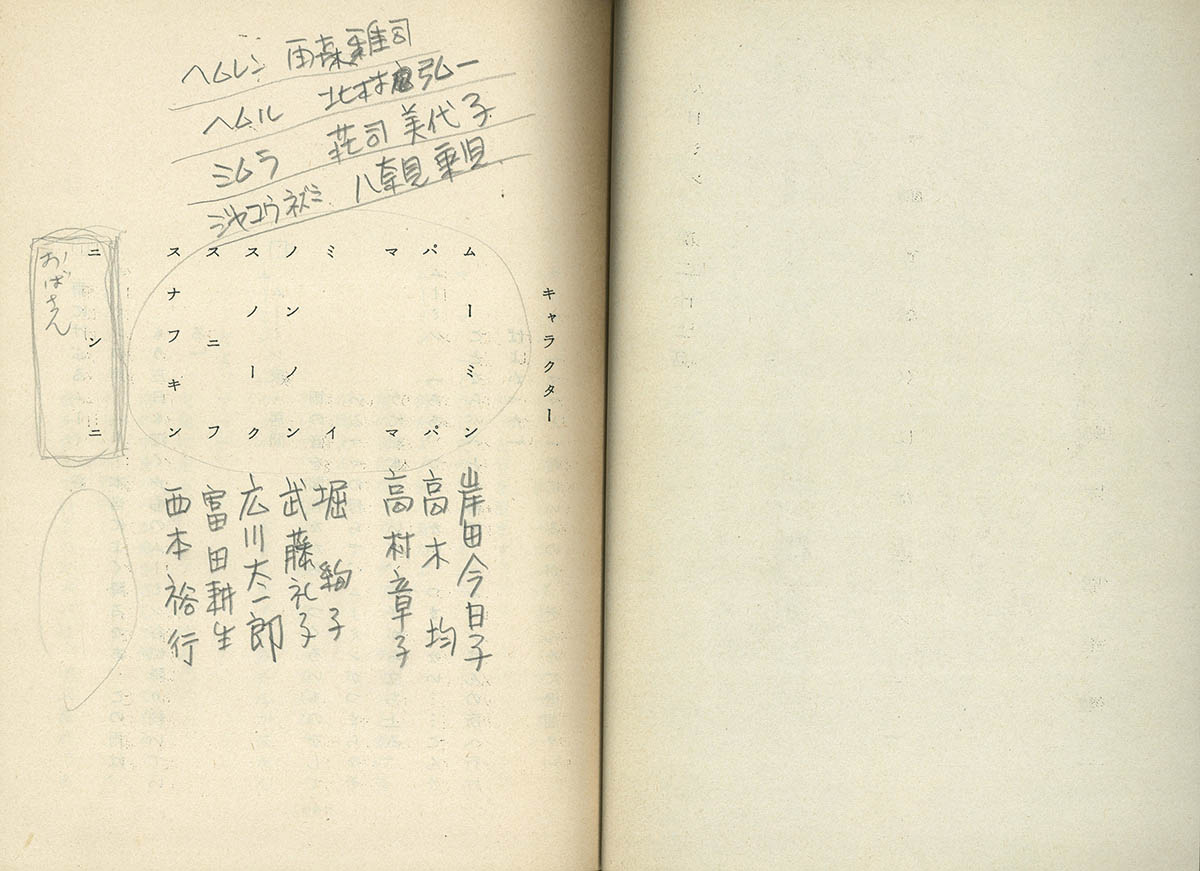 ヘムレン 雨森雅司
ヘムル 北村弘一
ミムラ 荘司美代子
ジャコウネズミ 八奈見乗児
キャラクター
ムーミン 岸田今日子
パパ 高木 均
ママ 高村章子
ミイ 堀 絢子
ノンノン 武藤礼子
スノーク 広川太一郎
スニフ 富田耕生
スナフキン 西本裕行
ニンニ
おばさん